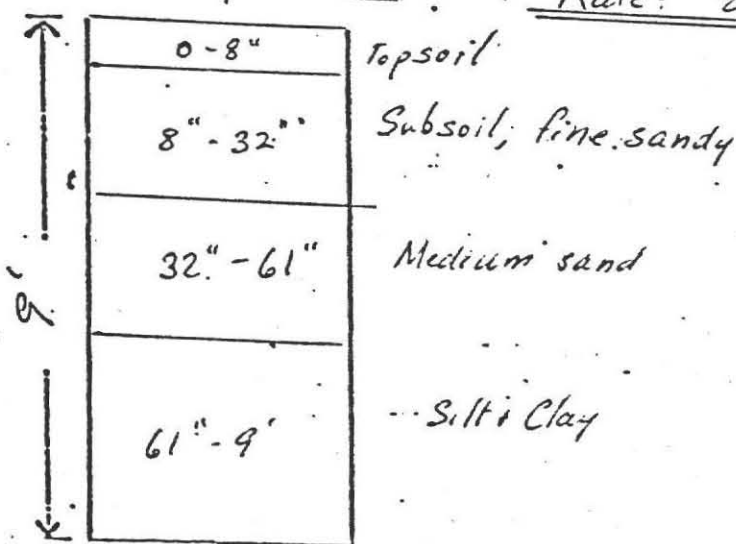 Rate:
0-8" Topsoil
8"-32" Subsoil, fine sandy
32"-61" Medium sand
9'
61"-9' Silt & Clay